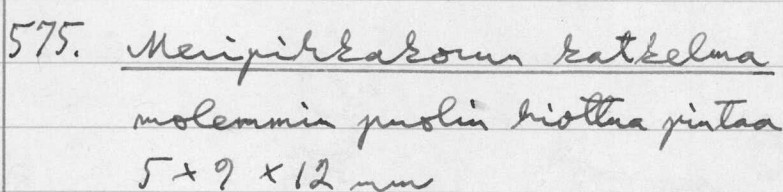 575. Meripihkakorun katkelma
molemmin puolin hiottua pintaa
5 × 9 × 12 mm